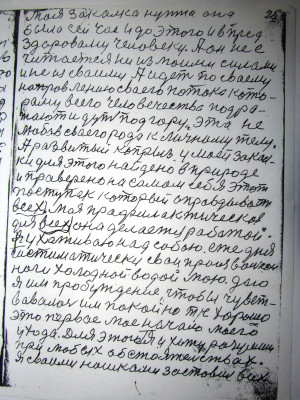 Моя закалка нужна она
была сейчас и до этого и вперед
Здоровому человеку. А он не с
читается ни из моими силами
и не из своими А идет по своему
направлению своего потока кото-
рому всего человечества подра-
жают и идут под гору. Эта не
любовь своего рода к личному телу.
А развитый каприз. у моей закал
ки для этого найдено в природе
и проверено на самом себе этот
поступок который оправдывать
всех. Моя профилактическое
для всех она делается работой
Я ухаживаю над собою. сте дня
систематически свои
ноги холодной водой Мою. даю
я им пробуждение, чтобы чувст-
вовалось им покойно т.к. хорошо
это первое мое начало моего
ухода. Для этого я и хожу разувши
при любых обстоятельствах.
Я своими ношками заставил всех